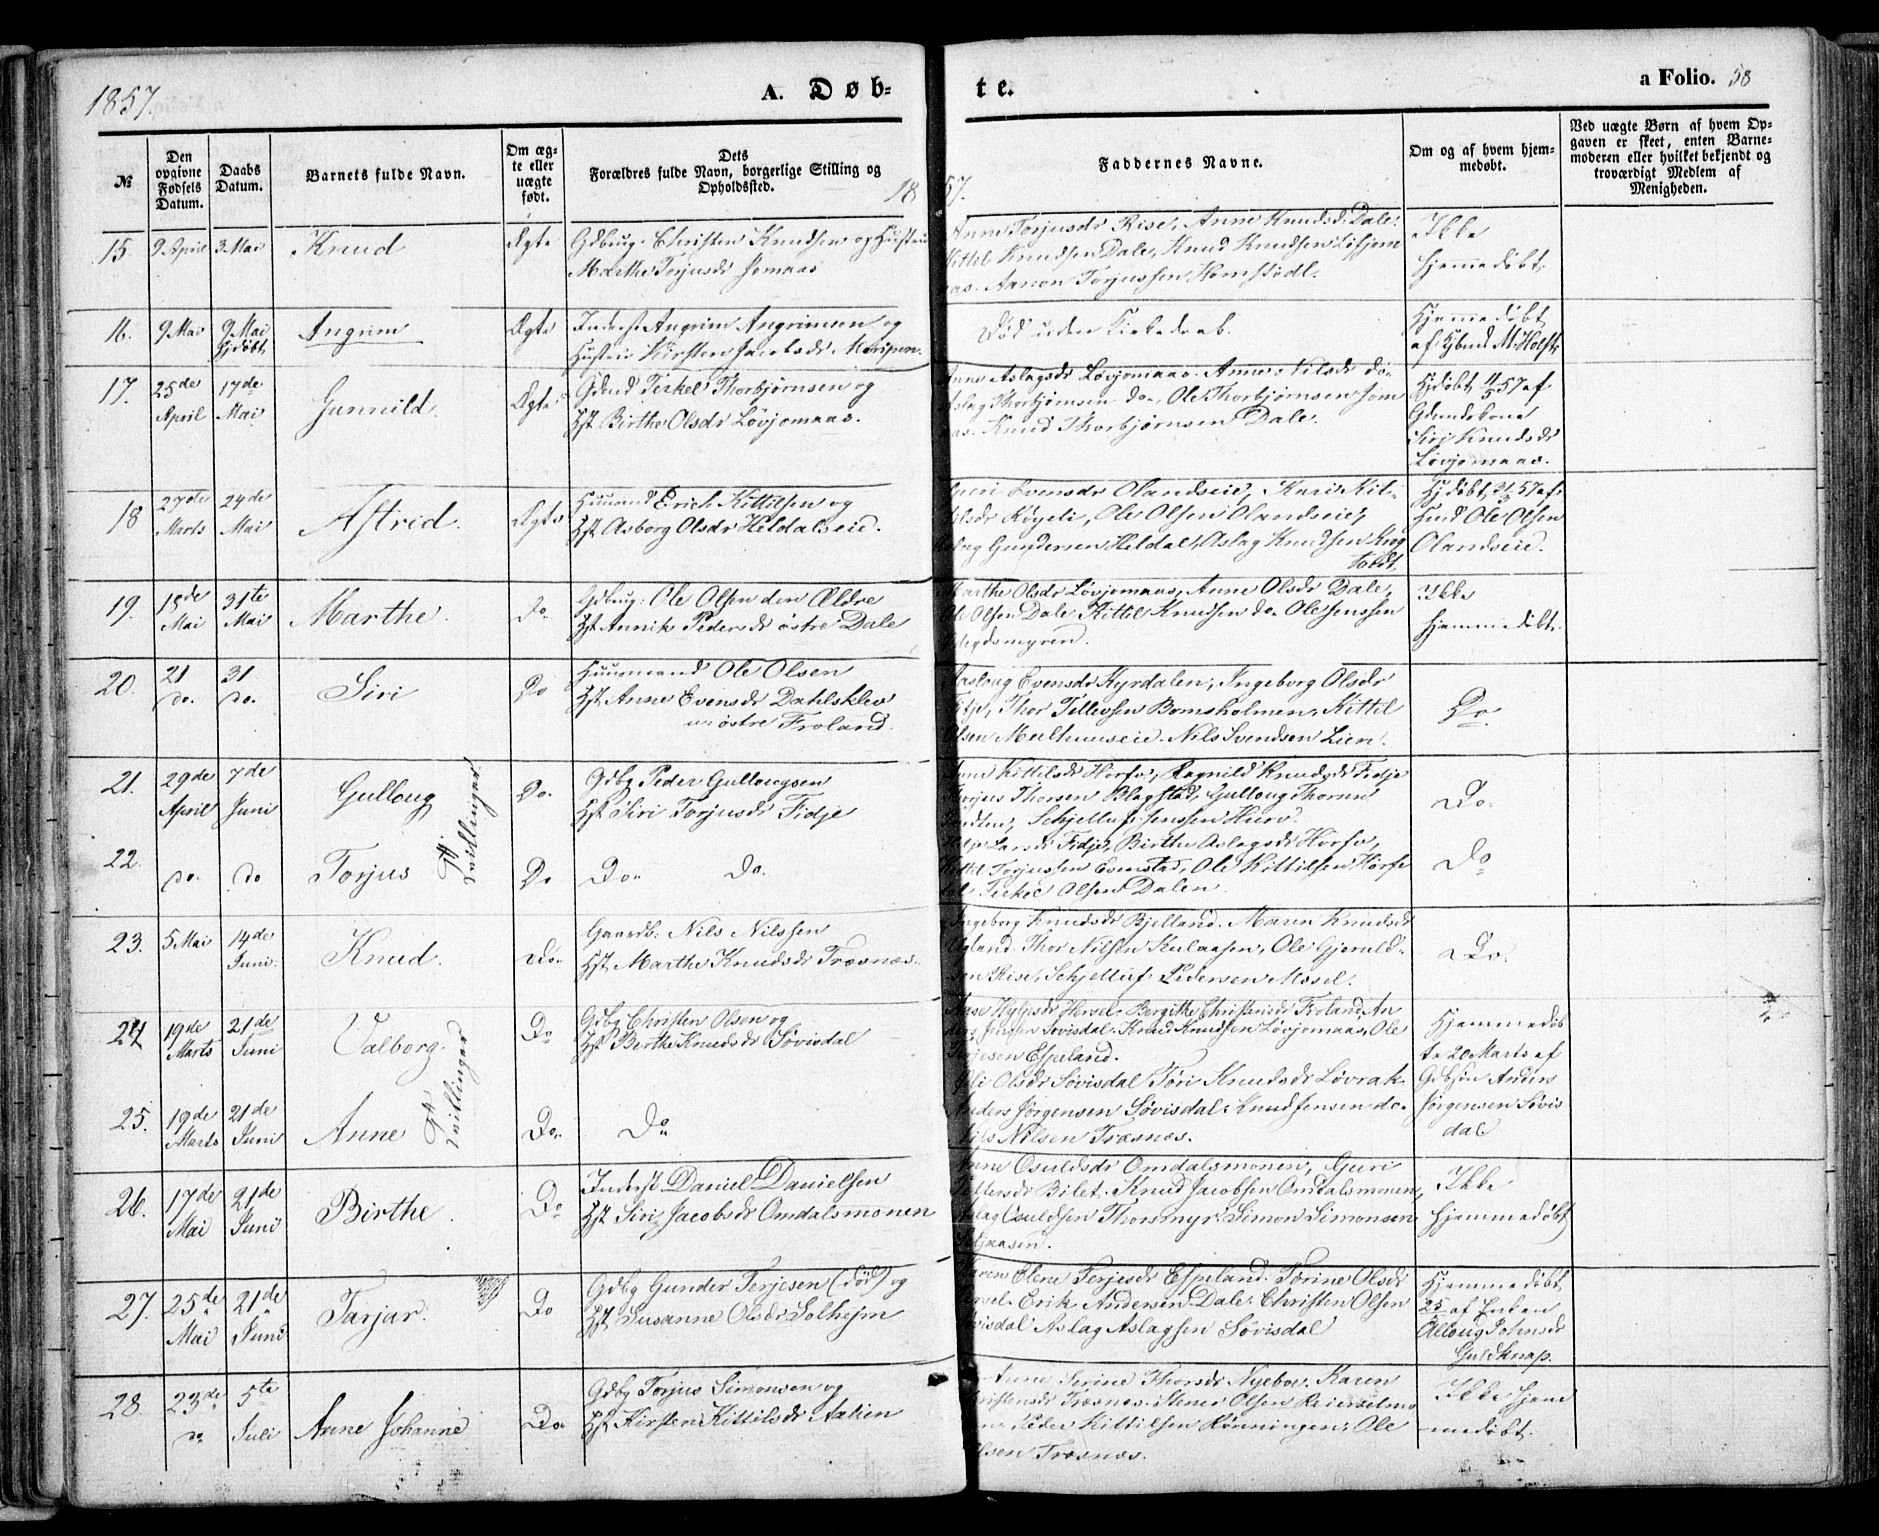 1857.
A. Døb-
te.
a Folio. 58
№
Den opgivne Fødsels Datum.
Daabs Datum.
Barnets fulde Navn.
Om ægte eller uægte født.
Dets
Forældres fulde Navn, borgerlige Stilling og
Opholdssted.
1857.
Faddernes Navne.
Om og af hvem hjemmedøbt.
Ved uægte Børn af hvem Opgaven er skeet, enten Barnemoderen eller hvilket bekjendt og troværdigt Medlem af Menigheden.
15. 9 April 3 Mai Knud Ægte
Gdbrug. Christen Knudsen og Hustrue
Marthe Torjusdr Jomaas
Anne Torjusdr Rise, Anne Knudsd. Dale.
Kittil Knudsen Dale, Knud Knudsen Løfjom
aas. Aanon Torjussen
Ikke
hjemmedøbt.
16. 9 Mai 9 Mai Hjdøbt Angrim Ægte
Inderst Angrim Angrimsen og
Hustrue Kirsten Jacobsdr Maripen.
Død uden Kirkedaab.
Hjemmedøbt
af Hbmd M. Holst
17. 25de April 17de Mai Gunnild. Ægte
Gdmd Terkel Thorbjørnsen og
Hst Birthe Olsdr Løvjomaas.
Anne Aslagsdr Løvjomaas. Anne Nilsdr do.
Aslag Thorbjørnsen do., Ole Thorbjørnsen Jom
aas. Knud Thorbjørnsen Dale.
Hjdøbt 11/5 57 af
Gdmdskone
Siri Knudsdr
Løvjomaas.
18 27de Marts 24de Mai Astrid. Ægte
Huusmd Erich Kittilsen og
Hst Asborg Olsdr Heldalseie.
Evensdr Olandseie, Kari Kit-
tilsdr Ole Olsen Olandseie,
Aslag Gundersen Heldal, Aslag Knudsen
Hjdøbt 57 af
Hmd Ole Olsen
Olandseie.
19. 15de Mai 31te Mai Marthe. Do
Gdbrug. Ole Olsen den Ældre
Hst Annik Pedersdr østre Dale
Marthe Olsdr Løvjomaas, Anne Olsdr Dale,
Ole Olsen Dale. Kittil Knudsen do Ole Jenssen
Ikke
hjemmedøbt.
20. 21 do. 31 do. Siri Do
Huusmand Ole Olsen
Hst Anne Evensdr Dahlsklev
østre Froland.
Aasloug Evensdr Hyrdalen, Ingeborg Olsdr
Thor Tellevsen Bomsholmen, Kittil
Olsen Melhuuseie. Nils Svendsen Lien.
Do.
21. 29de April 7de Juni Gulloug Do.
Tvillinger
Gdbg Peder Gullougsen
Hst Siri Torjusdr Fidje
Anne Kittilsdr Horfo, Ragnild Knudsdr Fidje
Torjus Thorsen Blagstad, Gulloug Thorsen
Schjelluf Jenssen
Do.
22. do. do Torjus Do
Do. Do.
Larsdr Fidje, Birthe Aslagsdr Horfo,
Kittil Torjussen Evenstad, Ole Kittilsen
Terkel Olsen Dalen.
Do
23. 5 Mai 14de Juni. Knud. Do.
Gaardb. Nils Nilssen
Hst Marthe Knudsdr Træsnæs.
Ingeborg Knudsdr Bjelland. Maren Knudsdr
Thor Nilsen Kulaasen, Ole Gjeruld-
sen Rise, Schjelluf Pedersen Messel.
Do.
24 19de Marts 21de Juni Valborg. Do
Tvillinger
Gdbg Christen Olsen og
Hst Birthe Knudsdr Søvisdal
Bergithe Christensdr Froland An
ders Jensen Søvisdal. Knud Knudsen Løvjomaas, Ole
Terjesen Espeland.
Hjemmedøb
te 20 Marts af
Gdbsøn Anders
Jørgensen Søvis
dal
25. 19de Marts 21de Juni Anne Do.
Do
Olsdr Søvisdal Tøri Knudsdr Løvrak
Anders Jørgensen Søvisdal. Knud Jensen do.
Nils Nilsen Træsnæs.
26. 17de Mai 21de Juni Birthe. Do
Inderst Daniel Danielsen
Hst Siri Jacobsdr Omdalsmonen
Anne Osuldsdr Omdalsmonen, Guri
Bilet. Knud Jacobsen Omdalsmonen,
Aslag Osuldsen Thorsmyr. Simon Simonsen
Ikke
hjemmedøbt
27. 25de Mai 21de Juni Tarjar. Do
Gdbg Gunder Terjesen (død) og
Hst Susanne Olsdr Solhejm
Karen Elene Terjesdr Espeland. Torine Olsdr
Messel. Erik Andersen Dale. Christen Olsen
Søvisdal Aslag Aslagsen Søvisdal
Hjemmedøbt
25 af Enken
Alloug Johnsdr
Guldknap.
28 23de do 5te Juli Anne Johanne Do.
Gdbg Torjus Simonsen og
Hst Kirsten Kittilsdr Aalien
Anne Serine Thorsdr Nyeboe. Karen
Christensdr Træsnæs. Stener Olsen
Peder Kittilsen Rønningen. Ole
Olsen Træsnæs.
Ikke hjem
medøbt.